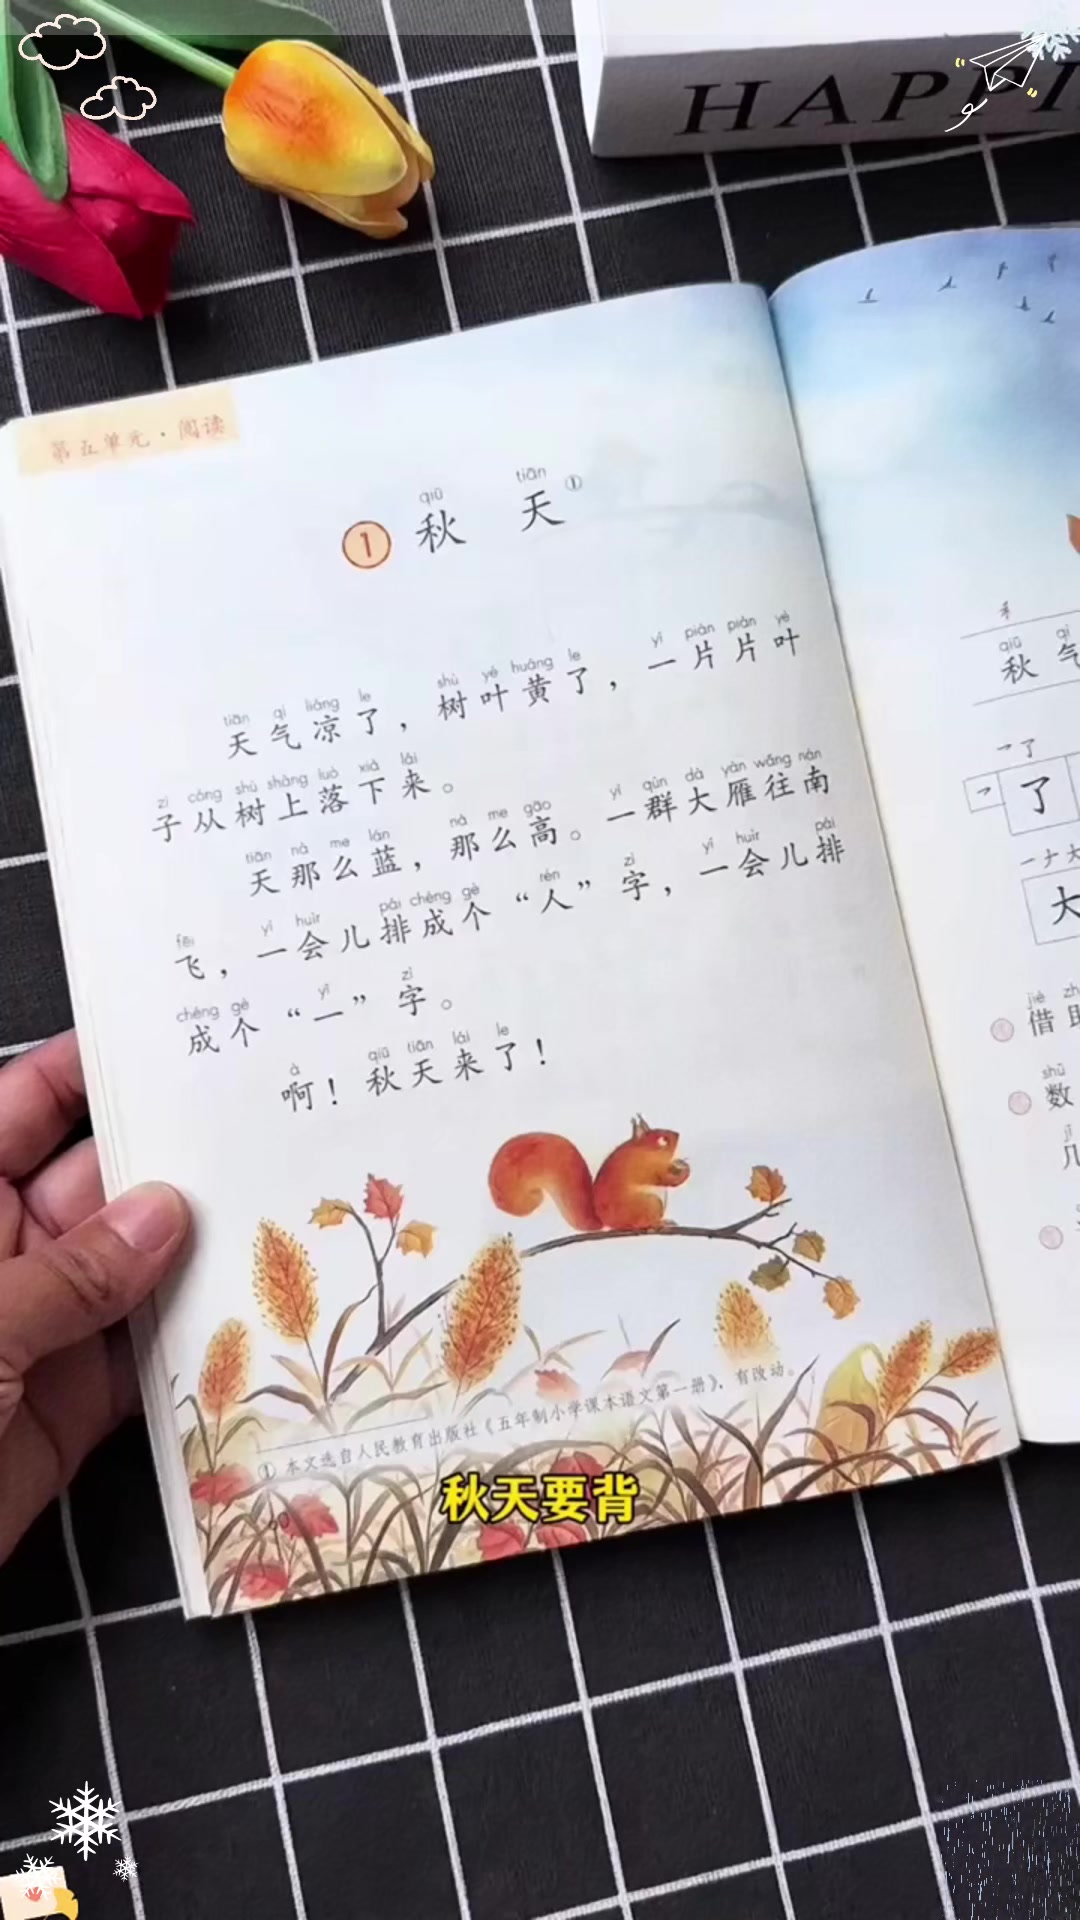 HAPPI
第五单元·阅读
qiū tiān
1 秋 天①
tiān qì liáng le shù yè huáng le yí piàn piàn yè
天气凉了，树叶黄了，一片片叶
zi cóng shù shàng luò xià lái
子从树上落下来。
tiān nà me lán nà me gāo yì qún dà yàn wǎng nán
天那么蓝，那么高。一群大雁往南
fēi yí huìr pái chéng gè rén zì yí huìr pái
飞，一会儿排成个“人”字，一会儿排
chéng gè yī zì
成个“一”字。
à qiū tiān lái le
啊！秋天来了！
①本文选自人民教育出版社《五年制小学课本语文第一册》，有改动。
qiū qì
秋气
了
大
jiè
借助
shǔ
数
jǐ
几
秋天要背